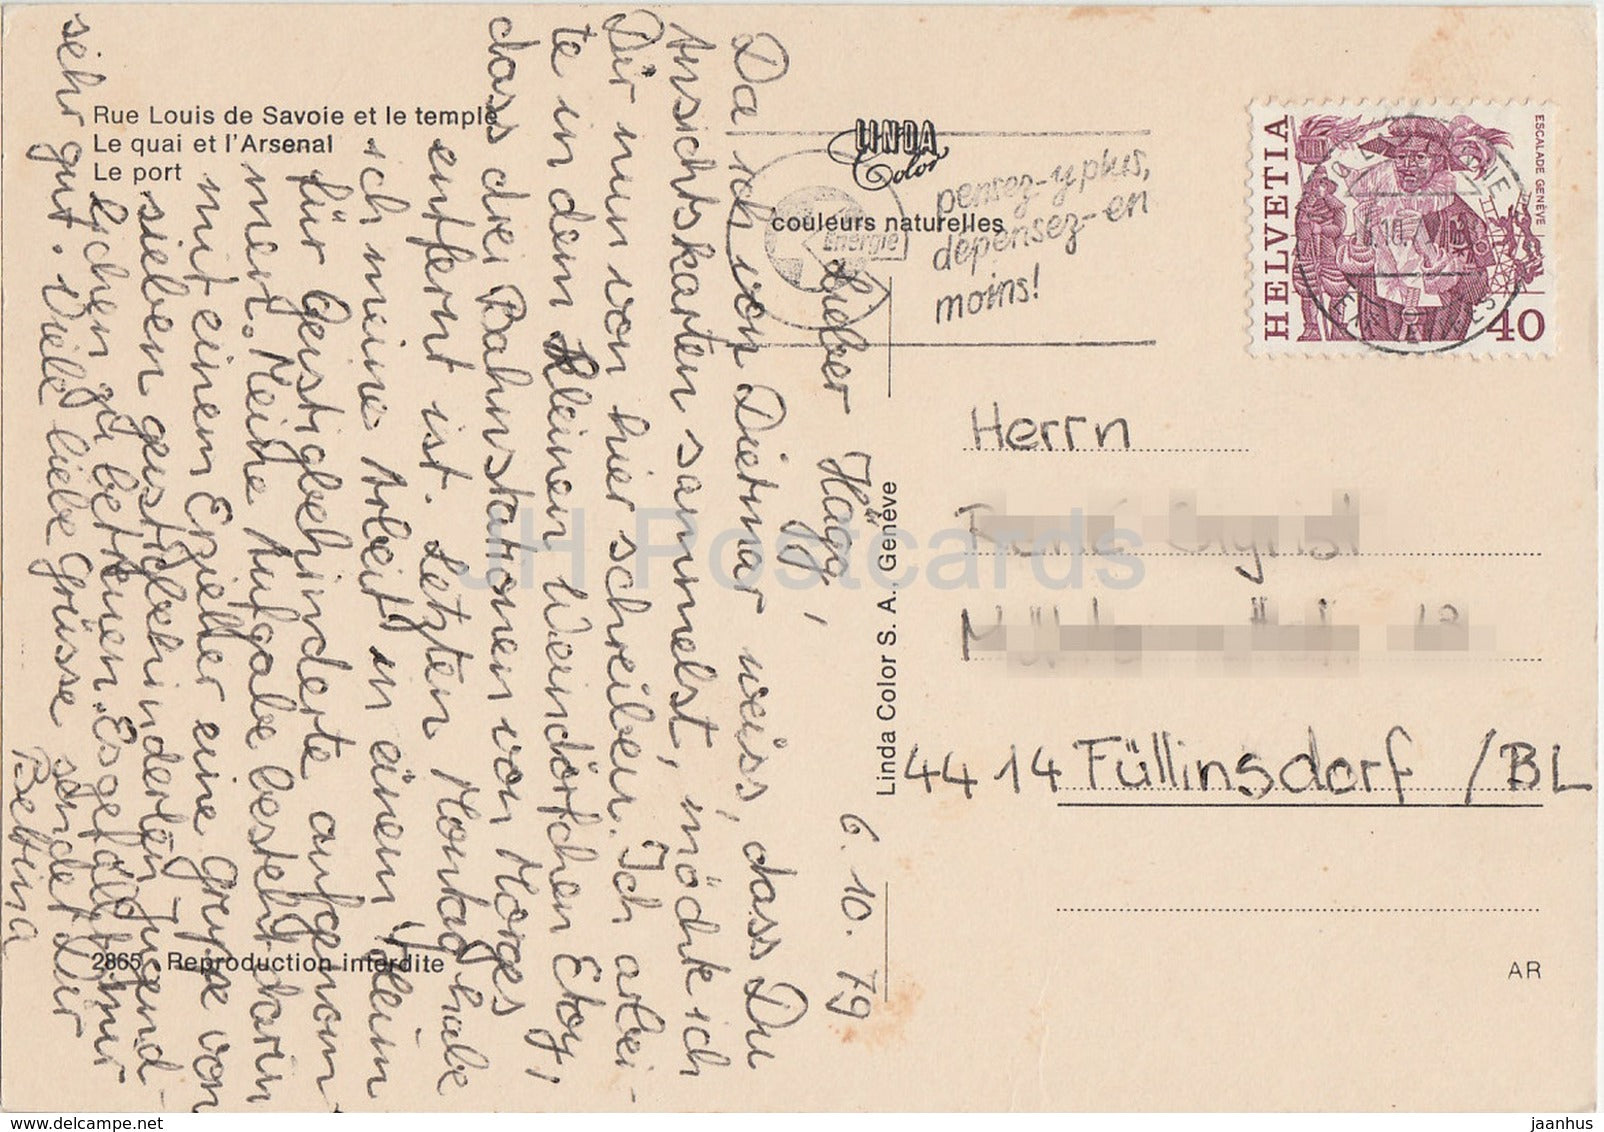 Rue Louis de Savoie et le temple
Le quai et l'Arsenal
Le port
LINDA
Color
couleurs naturelles
Energie
pensez-y plus,
dépensez-en
moins!
HELVETIA
ESCALADE GENÈVE
40
6. 10. 79
Lieber Hägg,
Da ich von Dietmar weiss, dass Du
Ansichtskarten sammelst, möchte ich
Dir nun von hier schreiben. Ich arbei-
te in dem kleinen Weindörfchen Etoy,
das drei Bahnstationen von Morges
entfernt ist. Letzten Montag habe
ich meine Arbeit in einem Heim
für Geistigbehinderte aufgenom-
men. Meine Aufgabe besteht darin
mit einem Erzieher eine Gruppe von
sieben geistigbehinderten Jugend-
lichen zu betreuen. Es gefällt mir
sehr gut. Viele liebe Grüsse sendet Dir
Bettina
Linda Color S. A., Genève
Herrn
4414 Füllinsdorf /BL
2865 Reproduction interdite
AR
JH Postcards
www.delcampe.net
jaanhus